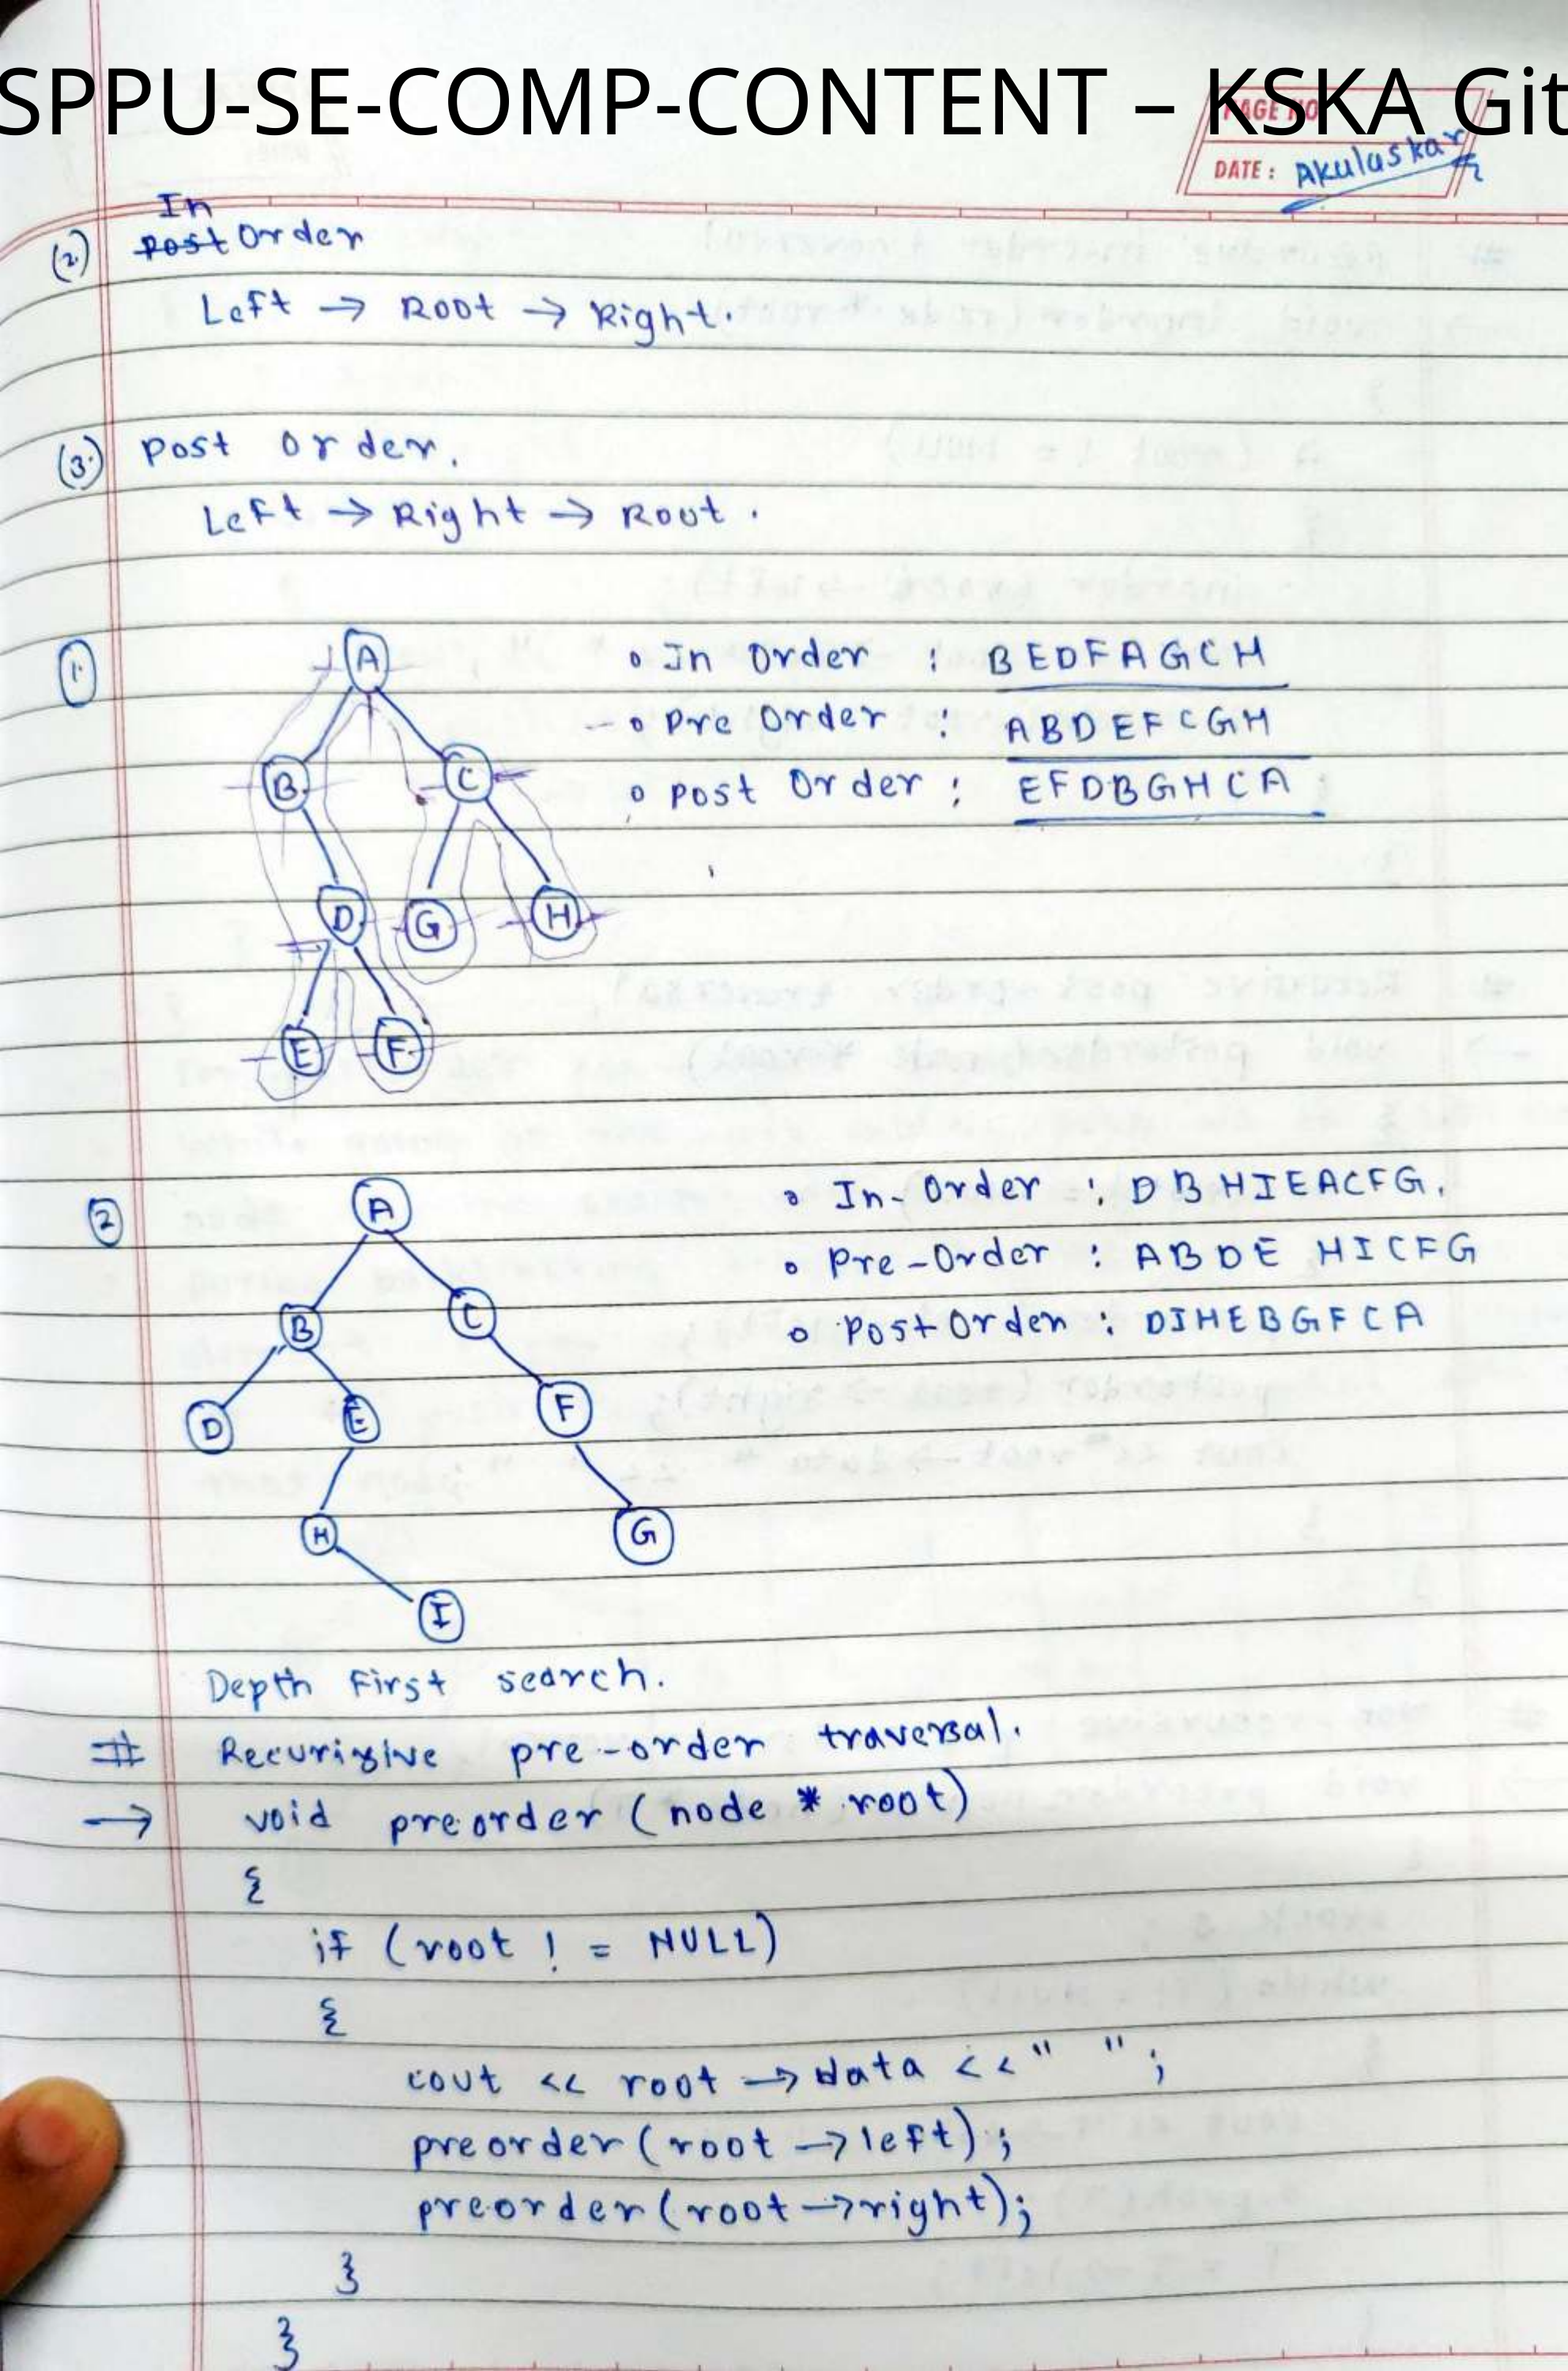 SPPU-SE-COMP-CONTENT – KSKA Git
PAGE NO
DATE: Akulaskar
In
(2.) post Order
Left → Root → Right.
(3.) Post order.
Left → Right → Root.
1.
A
B
C
D
G
H
E
F
o In Order : BEDFAGCH
- o Pre Order : ABDEFCGH
o Post Order : EFDBGHCA
2
A
B
C
D
E
F
H
G
I
o In-Order : DBHIEACFG.
o Pre-Order : ABDE HICFG
o PostOrder : DIHEBGFCA
Depth First search.
# Recurisive pre-order traversal.
→ void preorder (node * root)
{
if (root ! = NULL)
{
cout << root → data << " " ;
preorder (root → left) ;
preorder (root → right);
}
}